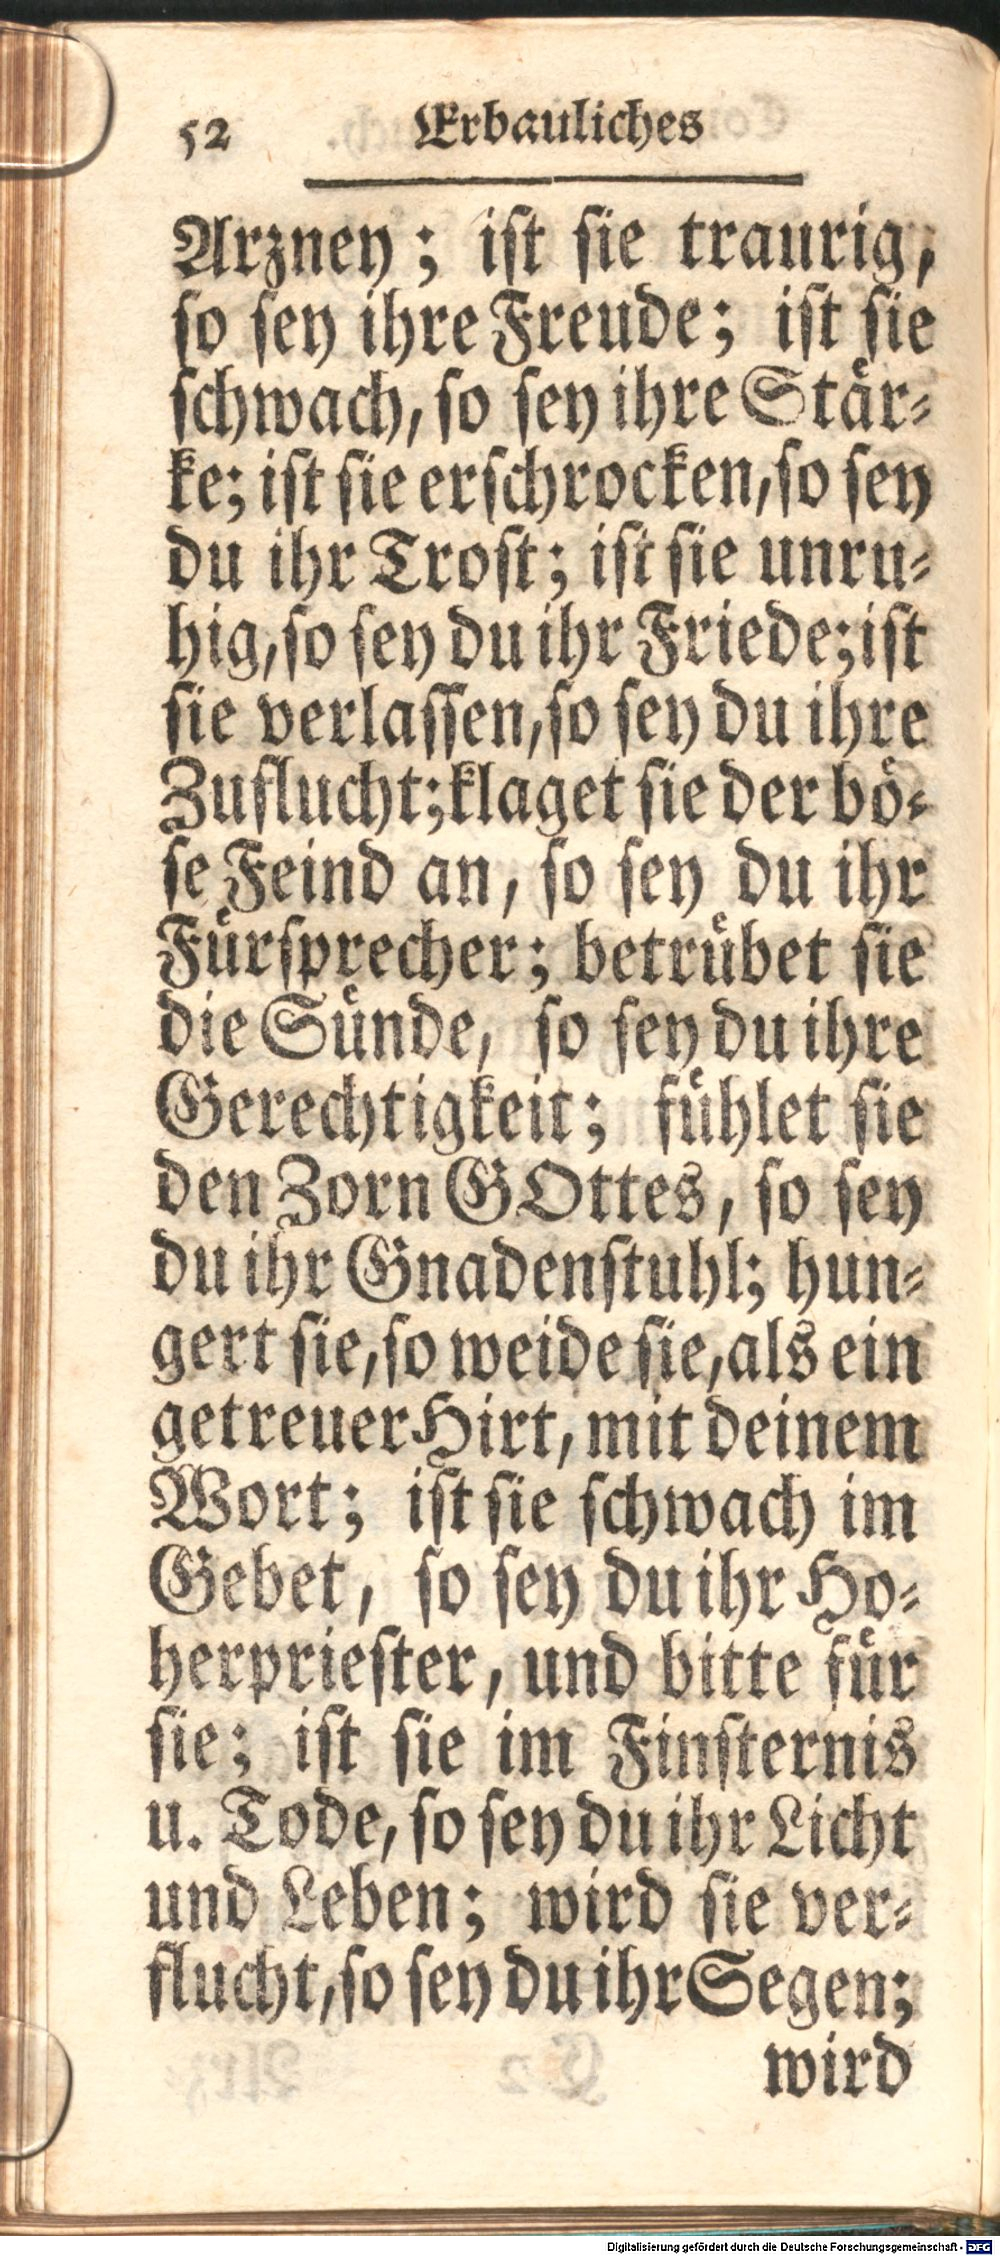 52 Erbauliches
Arzney; ist sie traurig,
so sey ihre Freude; ist sie
schwach, so sey ihre Stär-
ke; ist sie erschrocken, so sey
du ihr Trost; ist sie unru-
hig, so sey du ihr Friede; ist
sie verlassen, so sey du ihre
Zuflucht; klaget sie der bö-
se Feind an, so sey du ihr
Fürsprecher; betrübet sie
die Sünde, so sey du ihre
Gerechtigkeit; fühlet sie
den Zorn GOttes, so sey
du ihr Gnadenstuhl; hun-
gert sie, so weide sie, als ein
getreuer Hirt, mit deinem
Wort; ist sie schwach im
Gebet, so sey du ihr Ho-
herpriester, und bitte für
sie; ist sie im Finsternis
u. Tode, so sey du ihr Licht
und Leben; wird sie ver-
flucht, so sey du ihr Segen;
wird
Digitalisierung gefördert durch die Deutsche Forschungsgemeinschaft - DFG